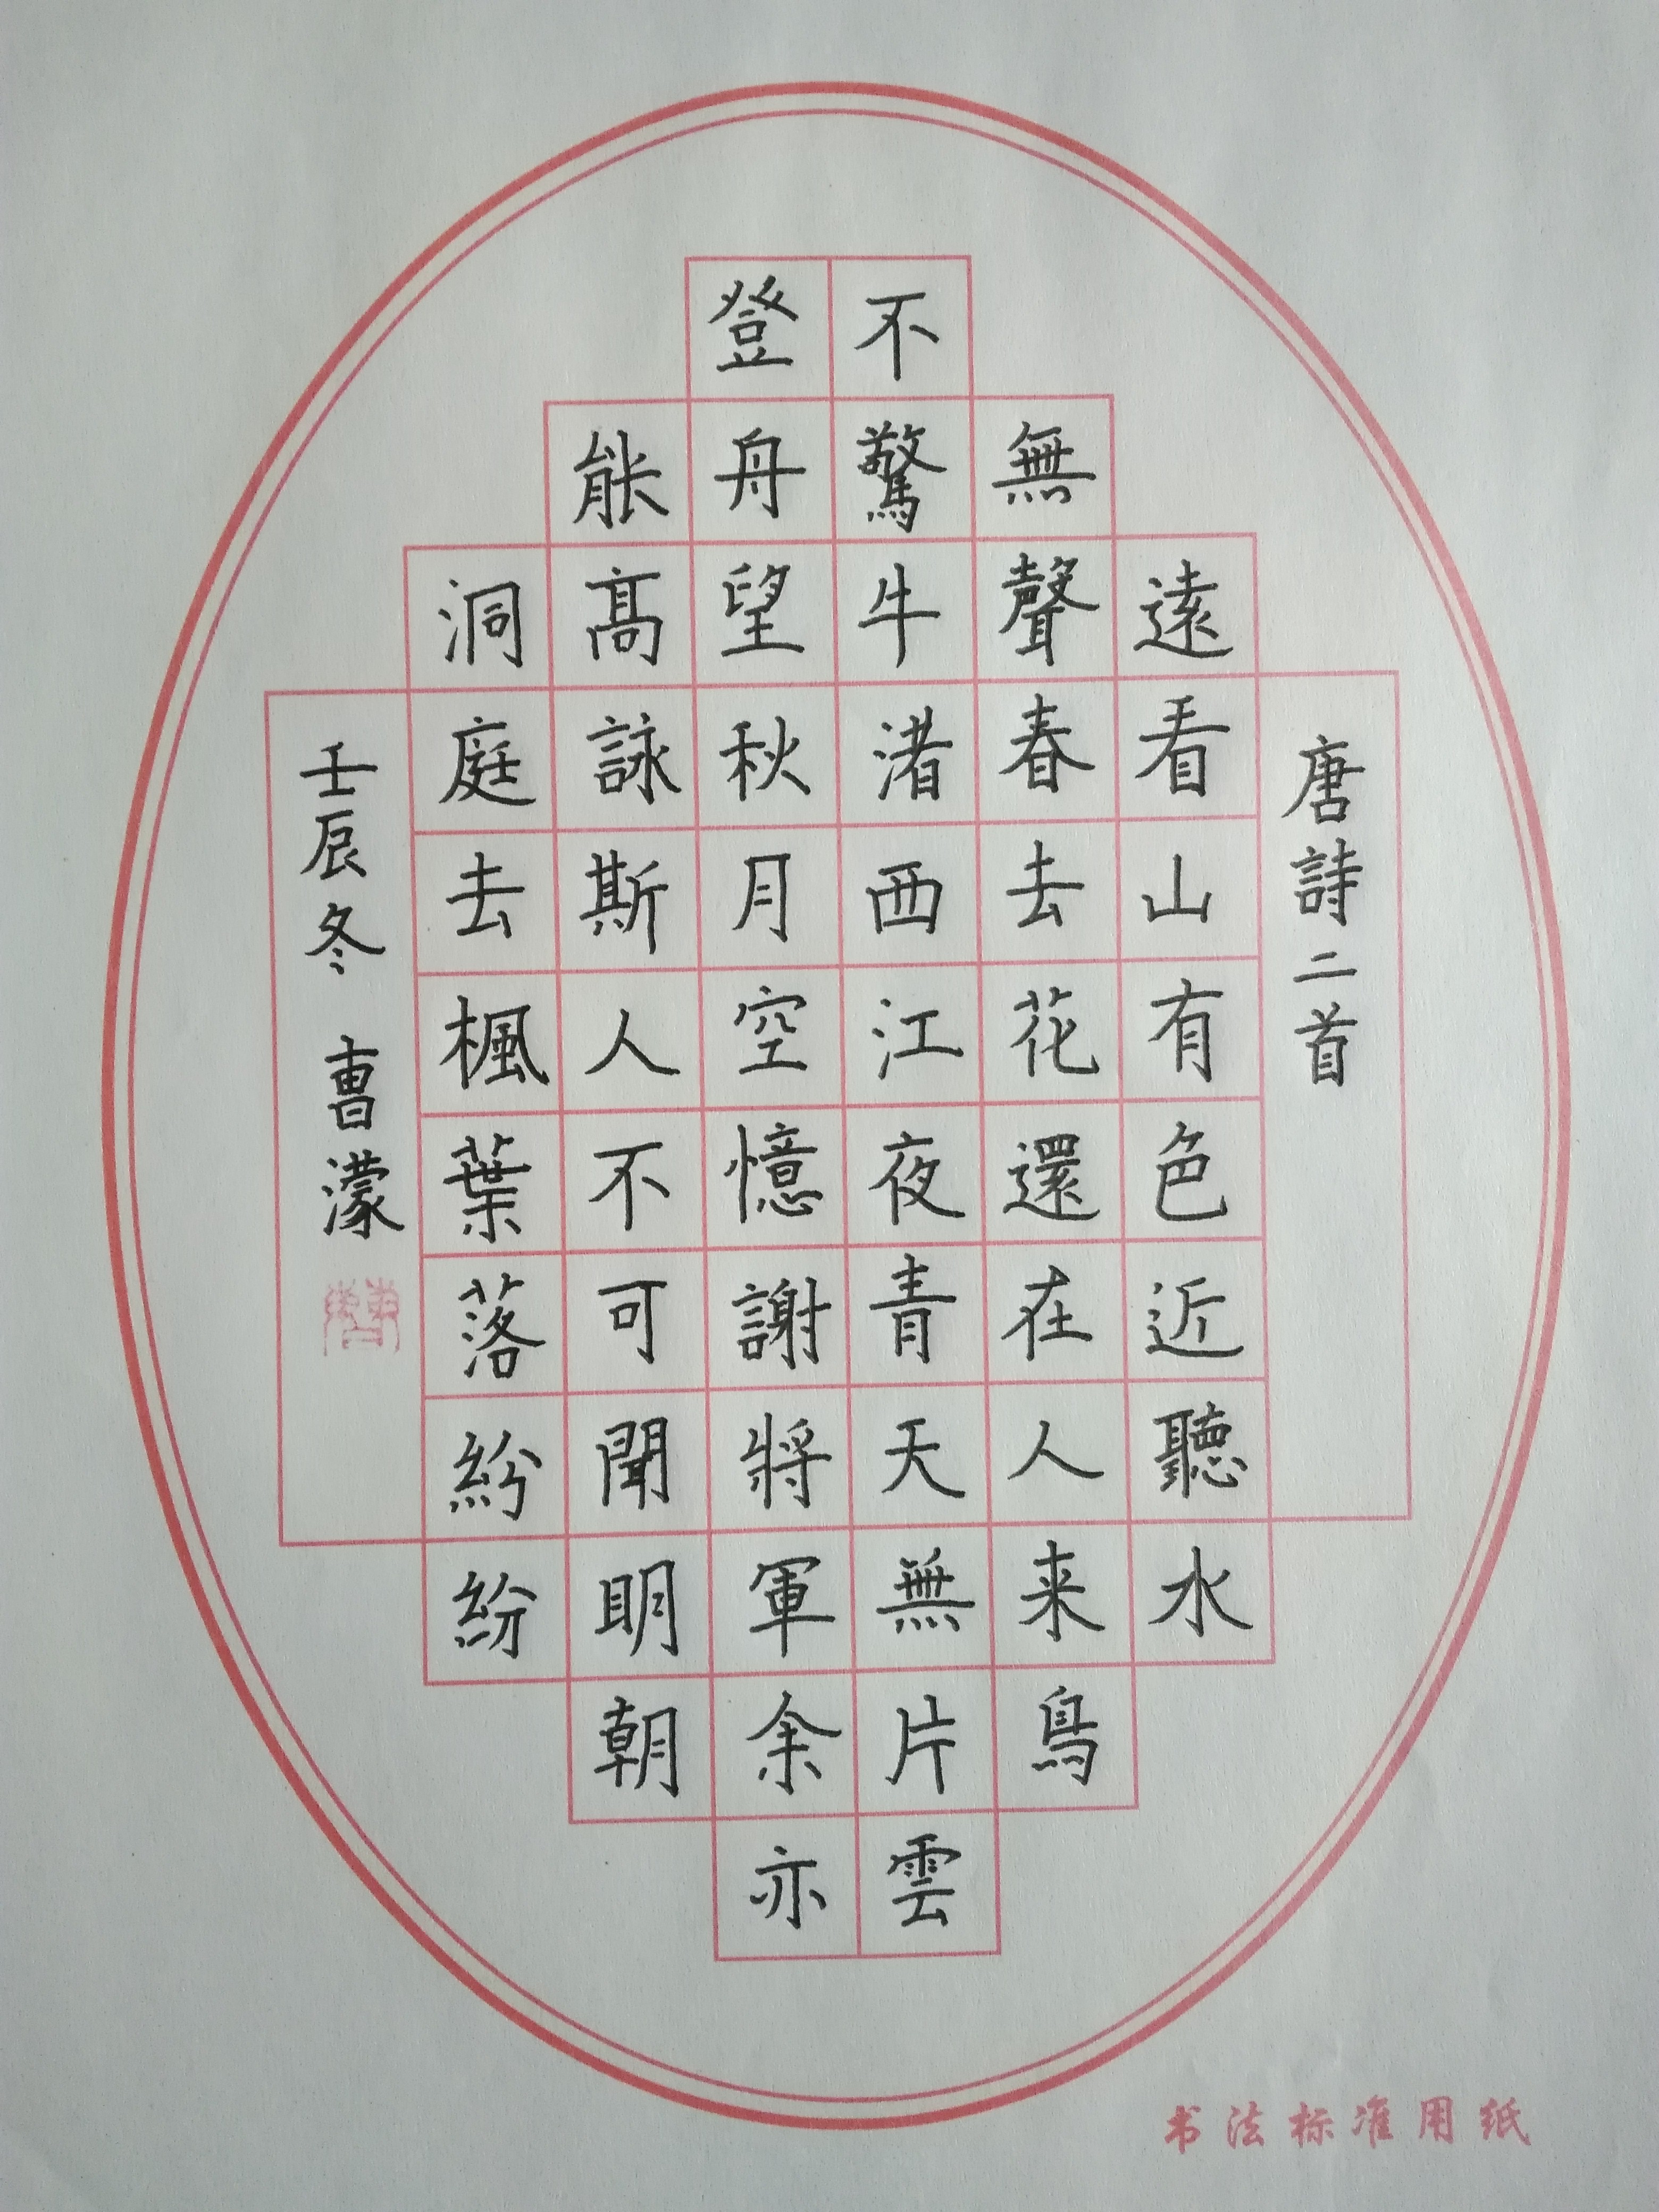 唐詩二首
遠看山有色近聽水
無聲春去花還在人来鳥
不驚牛渚西江夜青天無片雲
登舟望秋月空憶謝將軍余亦
能高詠斯人不可聞明朝
洞庭去楓葉落紛紛
壬辰冬 曹濛
书法标准用纸